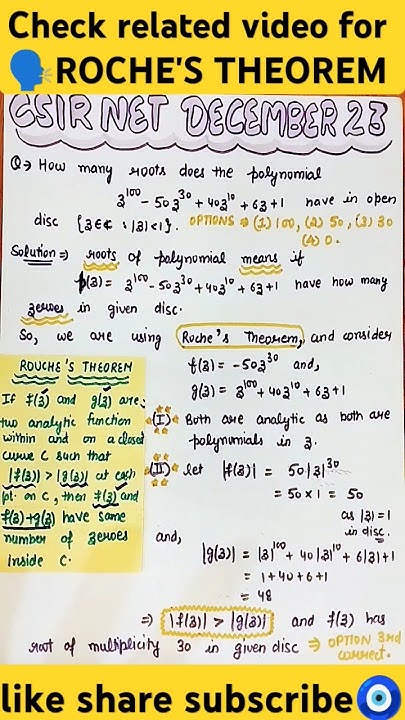 Check related video for
🗣️ROCHE'S THEOREM
CSIR NET DECEMBER 23
Q→ How many roots does the polynomial
z¹⁰⁰ - 50z³⁰ + 40z¹⁰ + 6z + 1 have in open
disc {z∈¢ : |z|<1}. OPTIONS ⇒ (1) 100, (2) 50, (3) 30
(4) 0.
Solution ⇒ roots of polynomial means if
p(z) = z¹⁰⁰ - 50z³⁰ + 40z¹⁰ + 6z + 1 have how many
zeroes in given disc.
So, we are using Roche's Theorem, and consider
f(z) = -50z³⁰ and,
g(z) = z¹⁰⁰ + 40z¹⁰ + 6z + 1
ROUCHE'S THEOREM
If f(z) and g(z) are
two analytic function
within and on a closed
curve C such that
|f(z)| > |g(z)| at each
pt. on C, then f(z) and
f(z)+g(z) have same
number of zeroes
inside C.
(I) Both are analytic as both are
polynomials in z.
(II) let |f(z)| = 50|z|³⁰
= 50 × 1 = 50
as |z|=1
in disc.
and,
|g(z)| = |z|¹⁰⁰ + 40|z|¹⁰ + 6|z| + 1
= 1+40+6+1
= 48
⇒ |f(z)| > |g(z)| and f(z) has
root of multiplicity 30 in given disc ⇒ OPTION 3rd
correct.
like share subscribe🧿